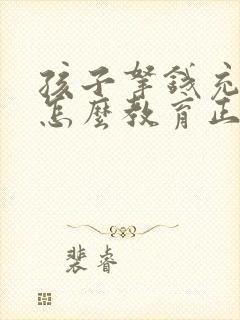 孩子拏錢充
怎麼教育正
裴睿